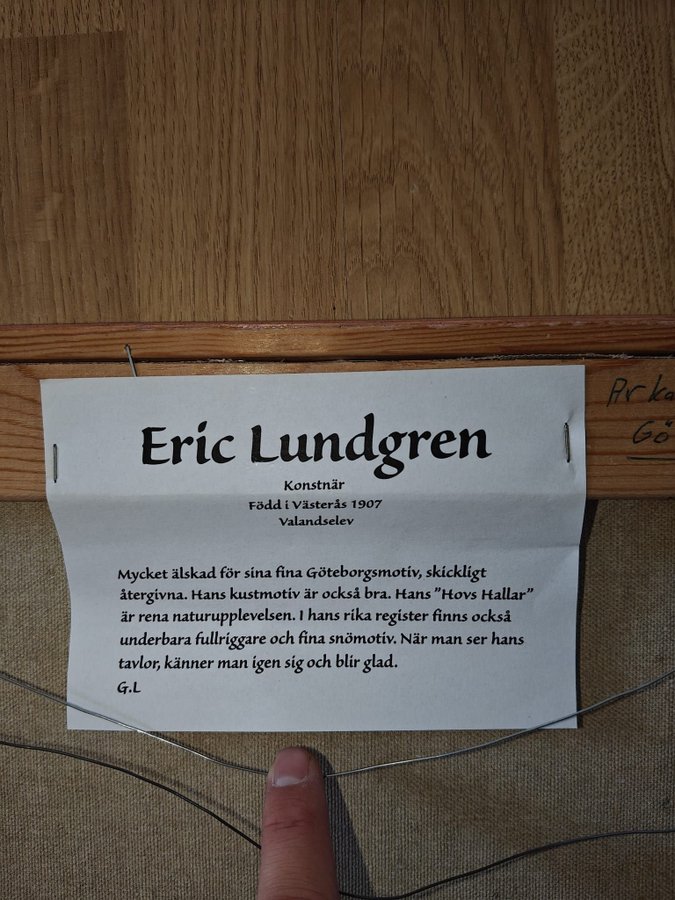 Eric Lundgren
Konstnär
Född i Västerås 1907
Valandselev
Mycket älskad för sina fina Göteborgsmotiv, skickligt
återgivna. Hans kustmotiv är också bra. Hans ”Hovs Hallar”
är rena naturupplevelsen. I hans rika register finns också
underbara fullriggare och fina snömotiv. När man ser hans
tavlor, känner man igen sig och blir glad.
G.L
Arka
Gö